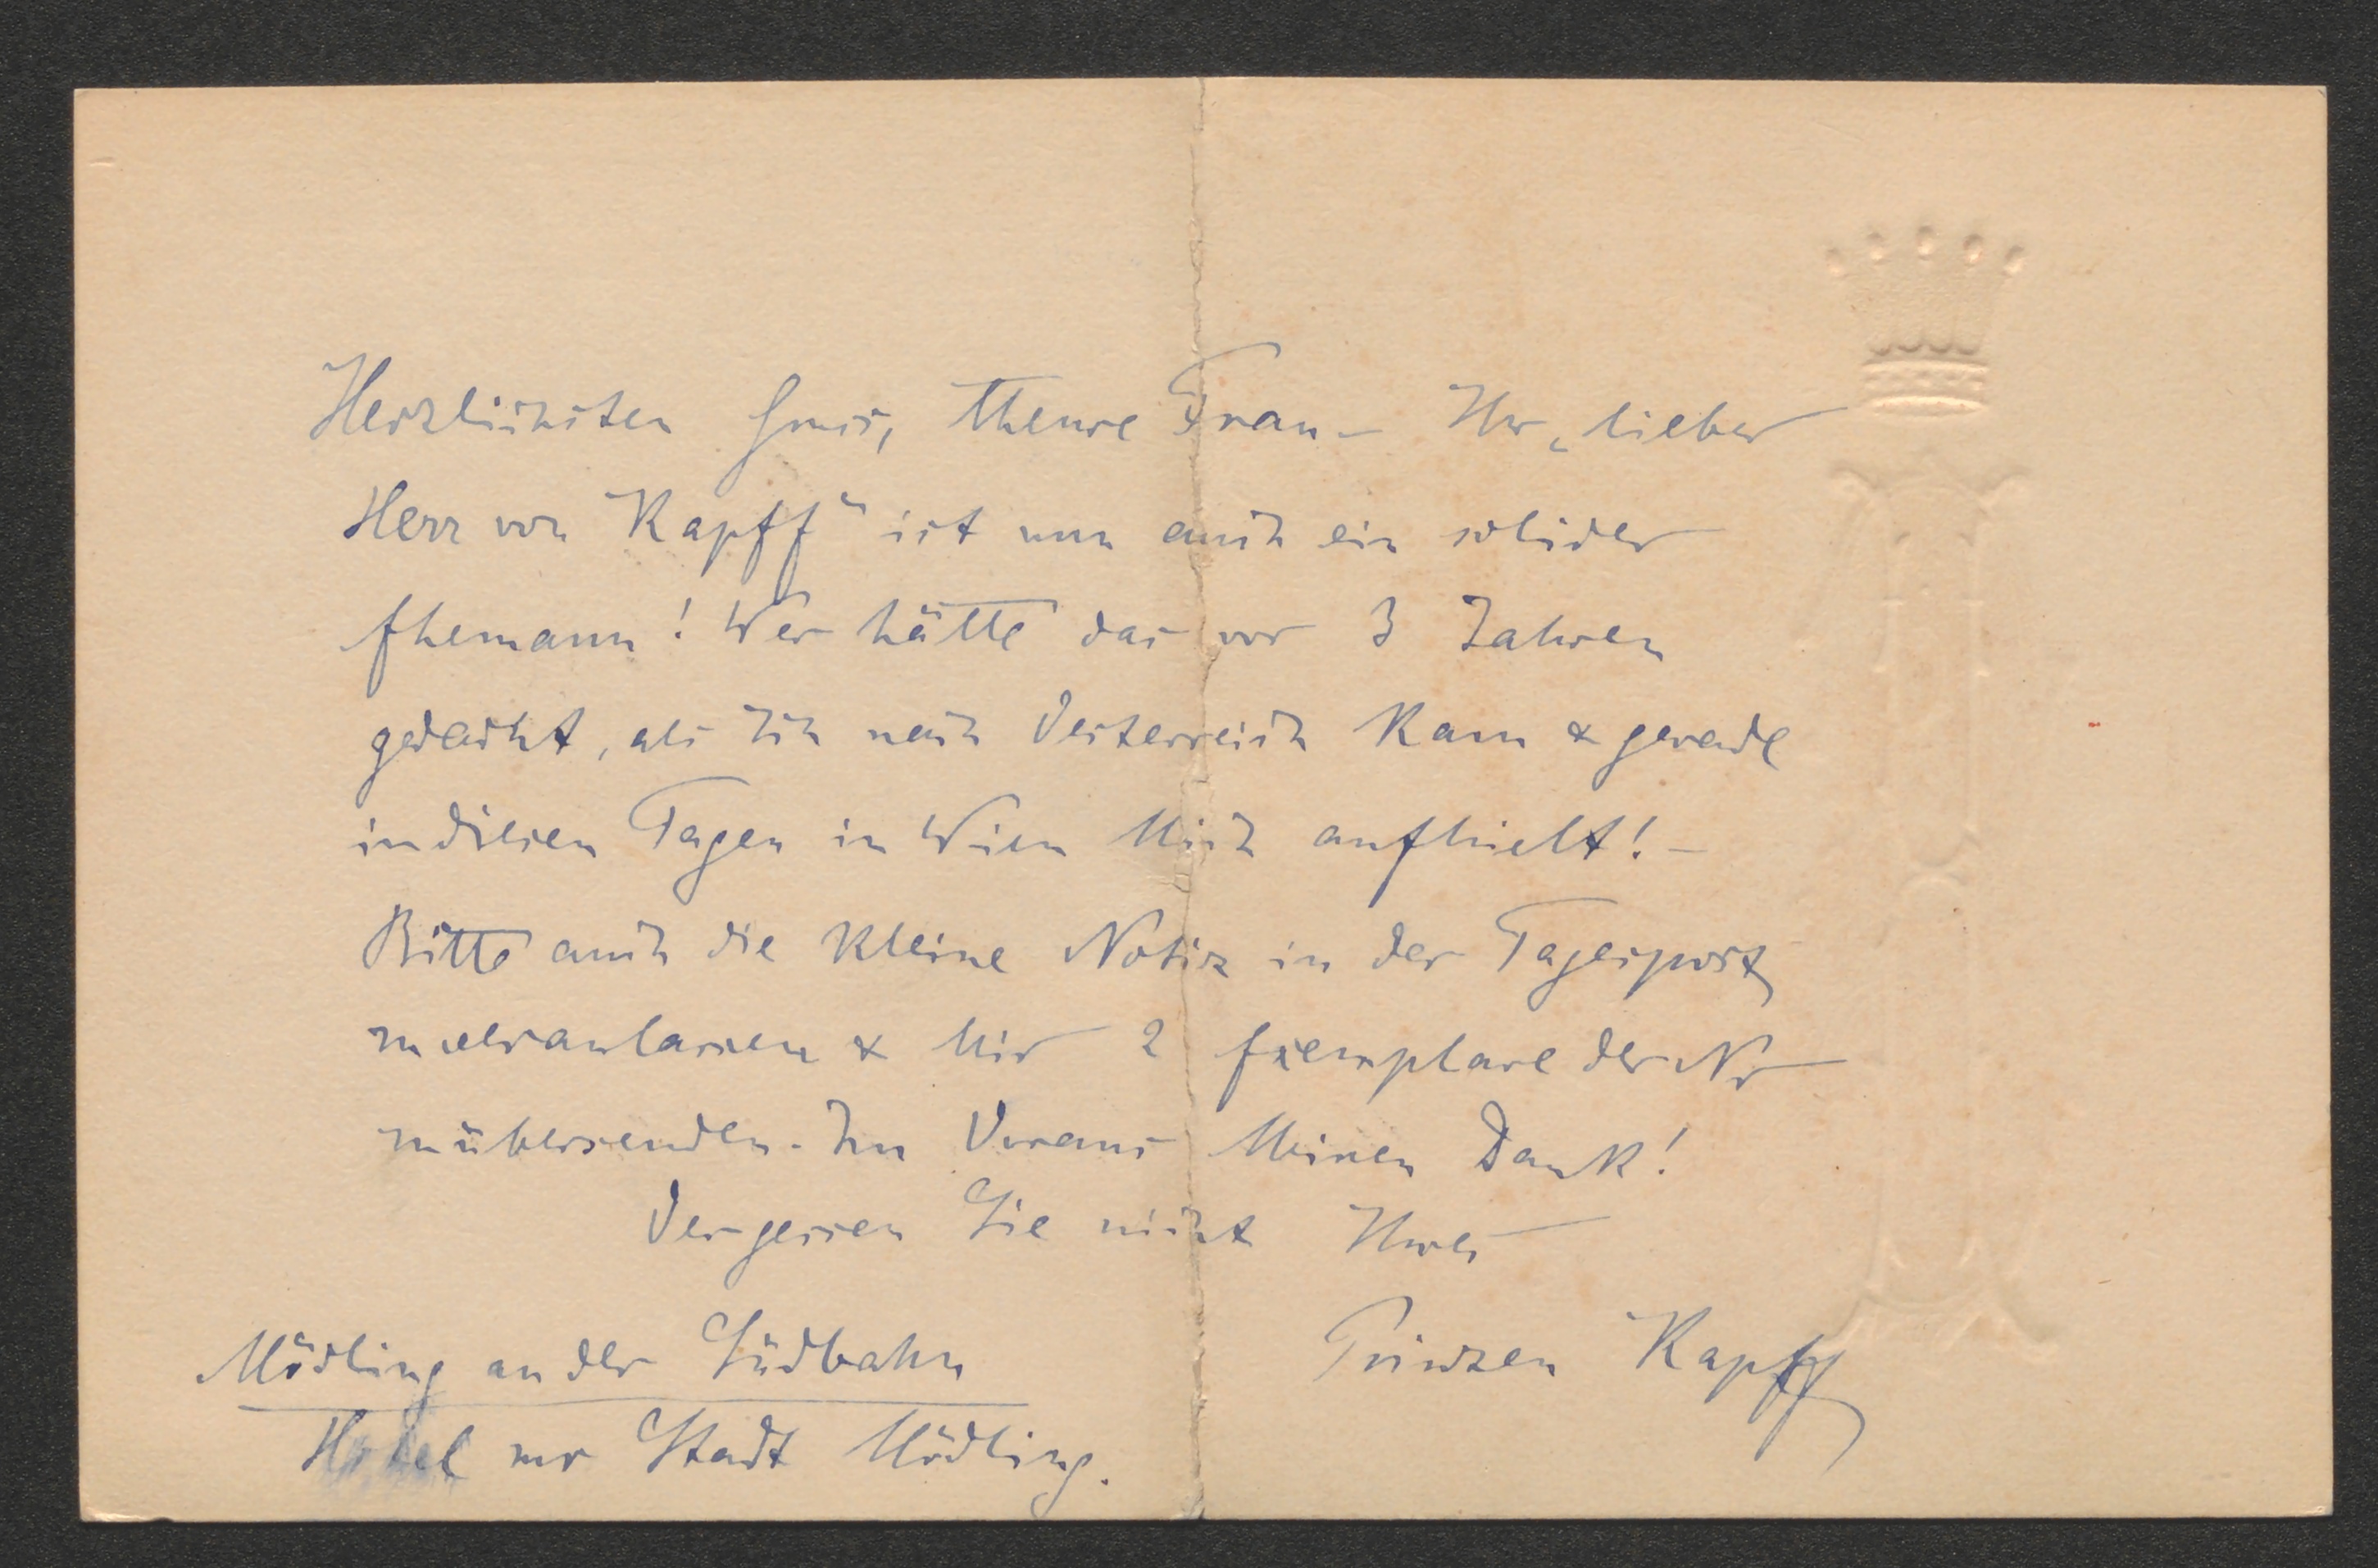 Herzlichsten Gruss, theure Frau – Ihr „lieber
Herr von Kapff“ ist nun auch ein solider
Ehemann! Wer hätte das vor 3 Jahren
gedacht, als Ich nach Oesterreich kam & gerade
in diesen Tagen in Wien Mich aufhielt! –
Bitte auch die kleine Notiz in der Tagespost
zu veranlassen & Mir 2 Exemplare der Nr
zu übersenden. Im Voraus Meinen Dank!
Vergessen Sie nicht Ihres
Prinzen Kapff
Mödling an der Südbahn
Hotel zur Stadt Mödling.